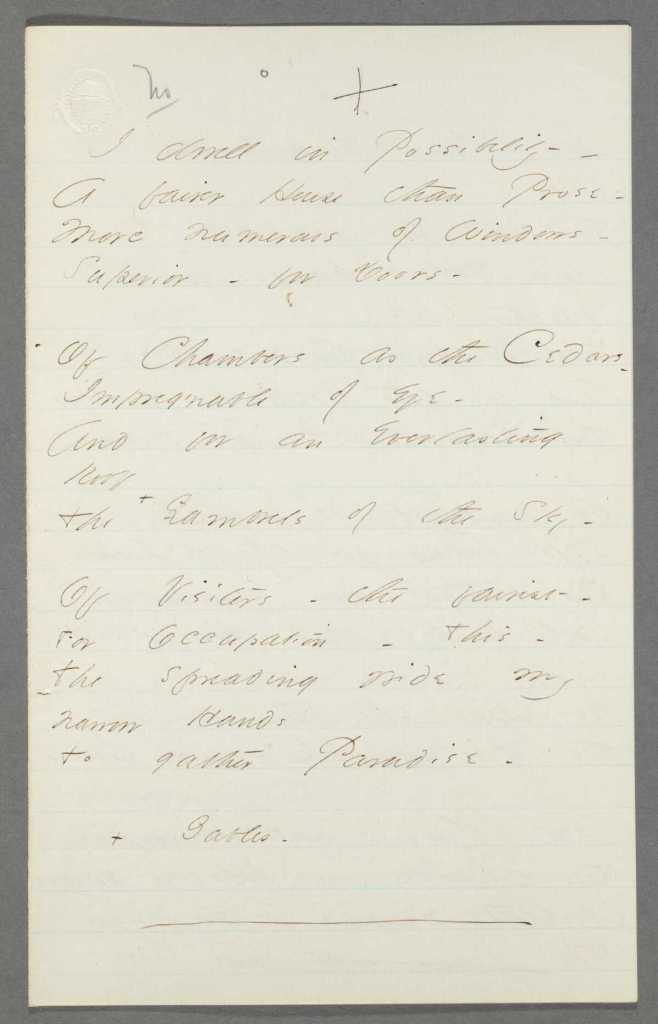 No ° +
I dwell in Possibility - -
A fairer House than Prose -
More numerous of Windows -
Superior - for Doors -
Of Chambers as the Cedars -
Impregnable of Eye -
And for an Everlasting
Roof
The + Gambrels of the Sky -
Of Visiters - the fairest -
For Occupation - This -
The spreading wide my
narrow Hands
To gather Paradise -
+ Gables -